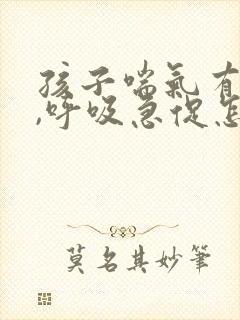 孩子喘氣有
,呼吸急促怎
莫名其妙筆